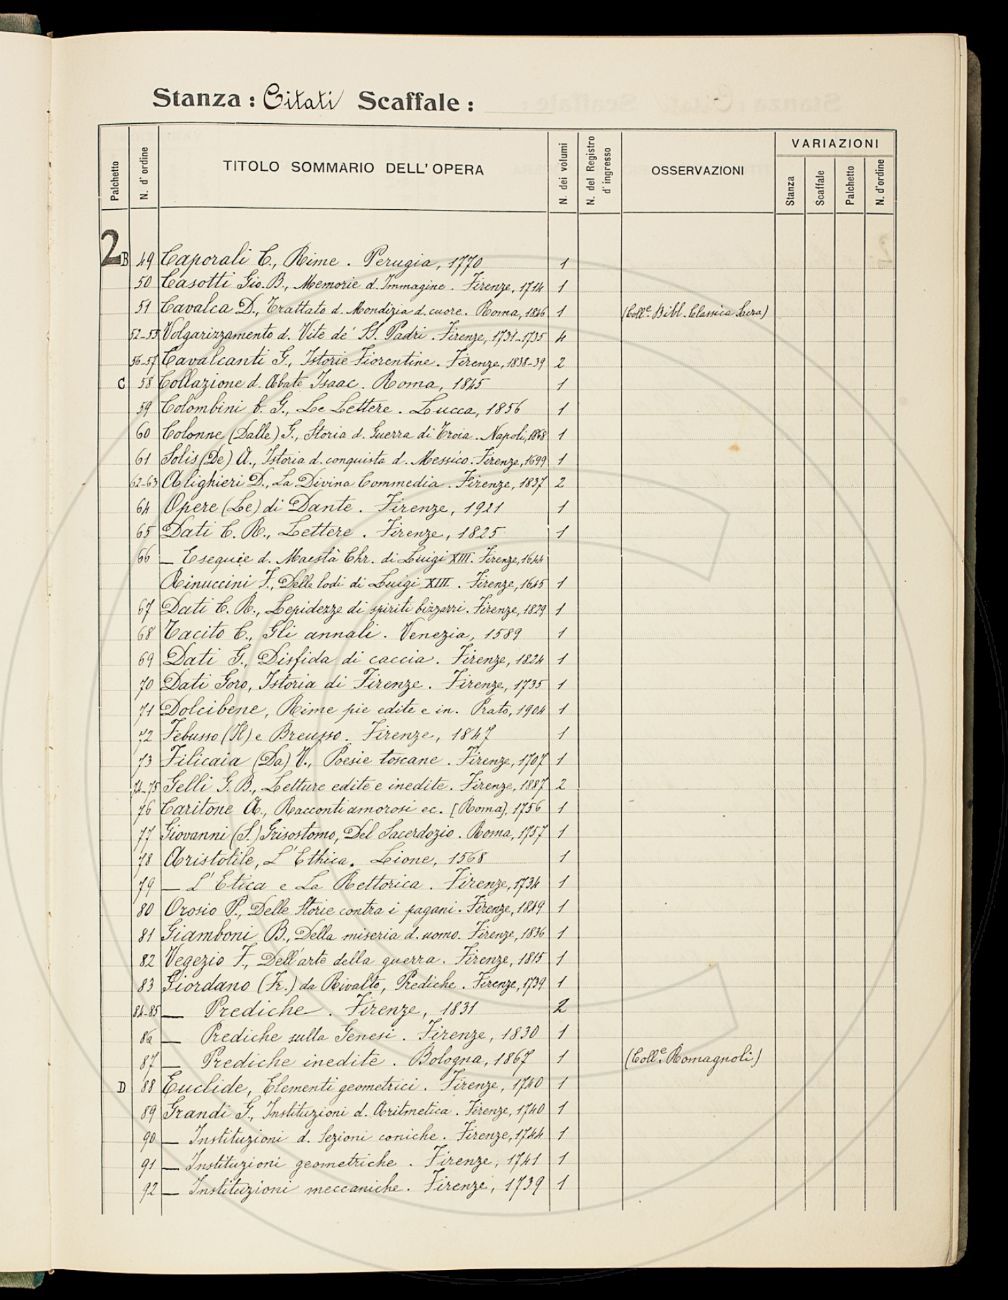 Stanza : Citati Scaffale :
Palchetto N. d'ordine TITOLO SOMMARIO DELL'OPERA N. dei volumi N. del Registro d'ingresso OSSERVAZIONI VARIAZIONI
Stanza Scaffale Palchetto N. d'ordine
2B 49 Caporali C., Rime. Perugia, 1770 1
50 Casotti Gio. B., Memorie d. Immagine. Firenze, 1714 1
51 Cavalca D., Trattato d. Mondizia d. cuore. Roma, 1846 1 (Coll.e Bibl. Classica Sacra)
52-55 Volgarizzamento d. Vite de' SS. Padri. Firenze, 1731-1735 4
56-57 Cavalcanti G., Istorie Fiorentine. Firenze, 1838-39 2
C 58 Collazione d. Abate Isaac. Roma, 1845 1
59 Colombini b. G., Le Lettere. Lucca, 1856 1
60 Colonne (Dalle) G., Storia d. Guerra di Troia. Napoli, 1868 1
61 Solis (De) A., Istoria d. conquista d. Messico. Firenze, 1699 1
62-63 Alighieri D., La Divina Commedia. Firenze, 1837 2
64 Opere (Le) di Dante. Firenze, 1921 1
65 Dati C. R., Lettere. Firenze, 1825 1
66 — Esequie d. Maestà Chr. di Luigi XIII. Firenze, 1644
Rinuccini F., Delle lodi di Luigi XIII. Firenze, 1645 1
67 Dati C. R., Lepidezze di spiriti bizzarri. Firenze, 1829 1
68 Tacito C., Gli annali. Venezia, 1589 1
69 Dati G., Disfida di caccia. Firenze, 1824 1
70 Dati Goro, Istoria di Firenze. Firenze, 1735 1
71 Dolcibene, Rime pie edite e in. Prato, 1904 1
72 Febusso (Il) e Breusso. Firenze, 1847 1
73 Filicaia (Da) V., Poesie toscane. Firenze, 1707 1
74-75 Gelli G. B., Letture edite e inedite. Firenze, 1887 2
76 Caritone A., Racconti amorosi ec. [Roma], 1756 1
77 Giovanni (S.) Grisostomo, Del Sacerdozio. Roma, 1757 1
78 Aristotile, L'Ethica. Lione, 1568 1
79 — L'Etica e La Rettorica. Firenze, 1734 1
80 Orosio P., Delle Storie contra i pagani. Firenze, 1849 1
81 Giamboni B., Della miseria d. uomo. Firenze, 1836 1
82 Vegezio F., Dell'arte della guerra. Firenze, 1815 1
83 Giordano (Fr.) da Rivalto, Prediche. Firenze, 1739 1
84-85 — Prediche. Firenze, 1831 2
86 — Prediche sulla Genesi. Firenze, 1830 1
87 — Prediche inedite. Bologna, 1867 1 (Coll.e Romagnoli)
D 88 Euclide, Elementi geometrici. Firenze, 1740 1
89 Grandi G., Instituzioni d. Aritmetica. Firenze, 1740 1
90 — Instituzioni d. Sezioni coniche. Firenze, 1744 1
91 — Instituzioni geometriche. Firenze, 1741 1
92 — Instituzioni meccaniche. Firenze, 1739 1